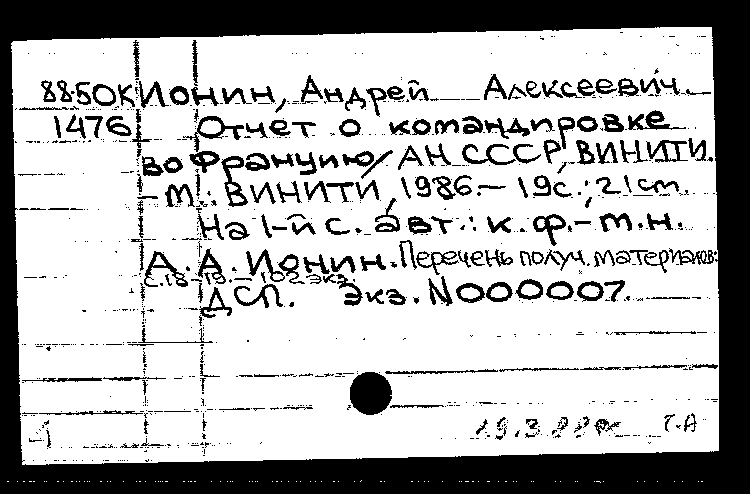 88-50К Ионин, Андрей Алексеевич.
1476 Отчет о командировке
во Францию/АН СССР, ВИНИТИ.
-М.: ВИНИТИ, 1986.- 19с.; 21см.
На 1-й с. авт.: к.ф.-м.н.
А.А.Ионин. Перечень получ. материалов:
с.18-19.-102экз
ДСП. Экз. N000007.
1 19.3.88 Т.А